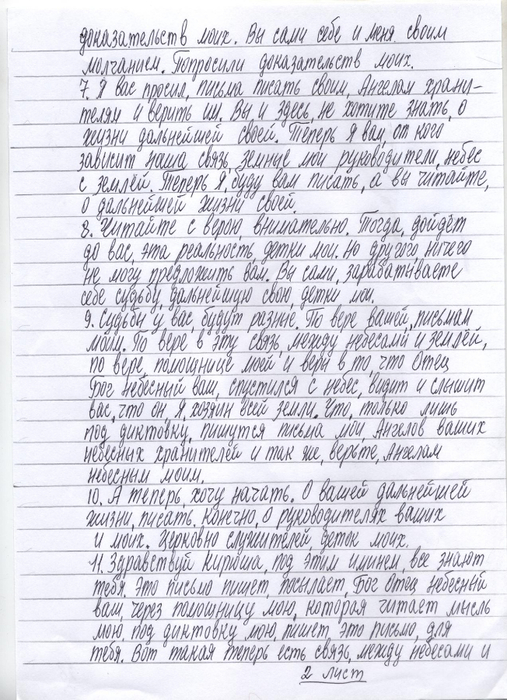 доказательств моих. Вы сами себе и меня своим
молчанием. Попросили доказательств моих.
7. Я вас просил, письма писать своим, Ангелам храни-
телям и верить им. Вы и здесь, не хотите знать, о
жизни дальнейшей своей. Теперь я вам, от кого
зависит наша связь, земные мои руководители, небес
с землёй. Теперь я, буду вам писать, а вы читайте,
о дальнейшей жизни своей.
8. Читайте с верою, внимательно. Тогда, дойдёт
до вас, эта реальность, детки мои. Но другого, ничего
не могу предложить вам. Вы сами, зарабатываете
себе судьбу, дальнейшую свою, детки мои.
9. Судьбы у вас, будут разные. По вере вашей, письмам
моим. По вере в эту связь, между небесами и землёй,
по вере, помощнице моей и вере в то, что Отец
Бог небесный вам, спустился с небес, видит и слышит
вас, что он, Я хозяин всей земли. Что, только лишь
под диктовку, пишутся письма мои, Ангелов ваших
небесных хранителей и так же, верьте, Ангелам
небесным моим.
10. А теперь, хочу начать. О вашей дальнейшей
жизни, писать, конечно, о руководителях ваших
и моих. Церковно служителей, деток моих.
11. Здравствуй Кирюша, под этим именем, все знают
тебя. Это письмо пишет, посылает, Бог Отец небесный
вам, через помощницу мою, которая читает мысль
мою, под диктовку мою, пишет это письмо, для
тебя. Вот такая теперь есть связь, между небесами и
2 лист